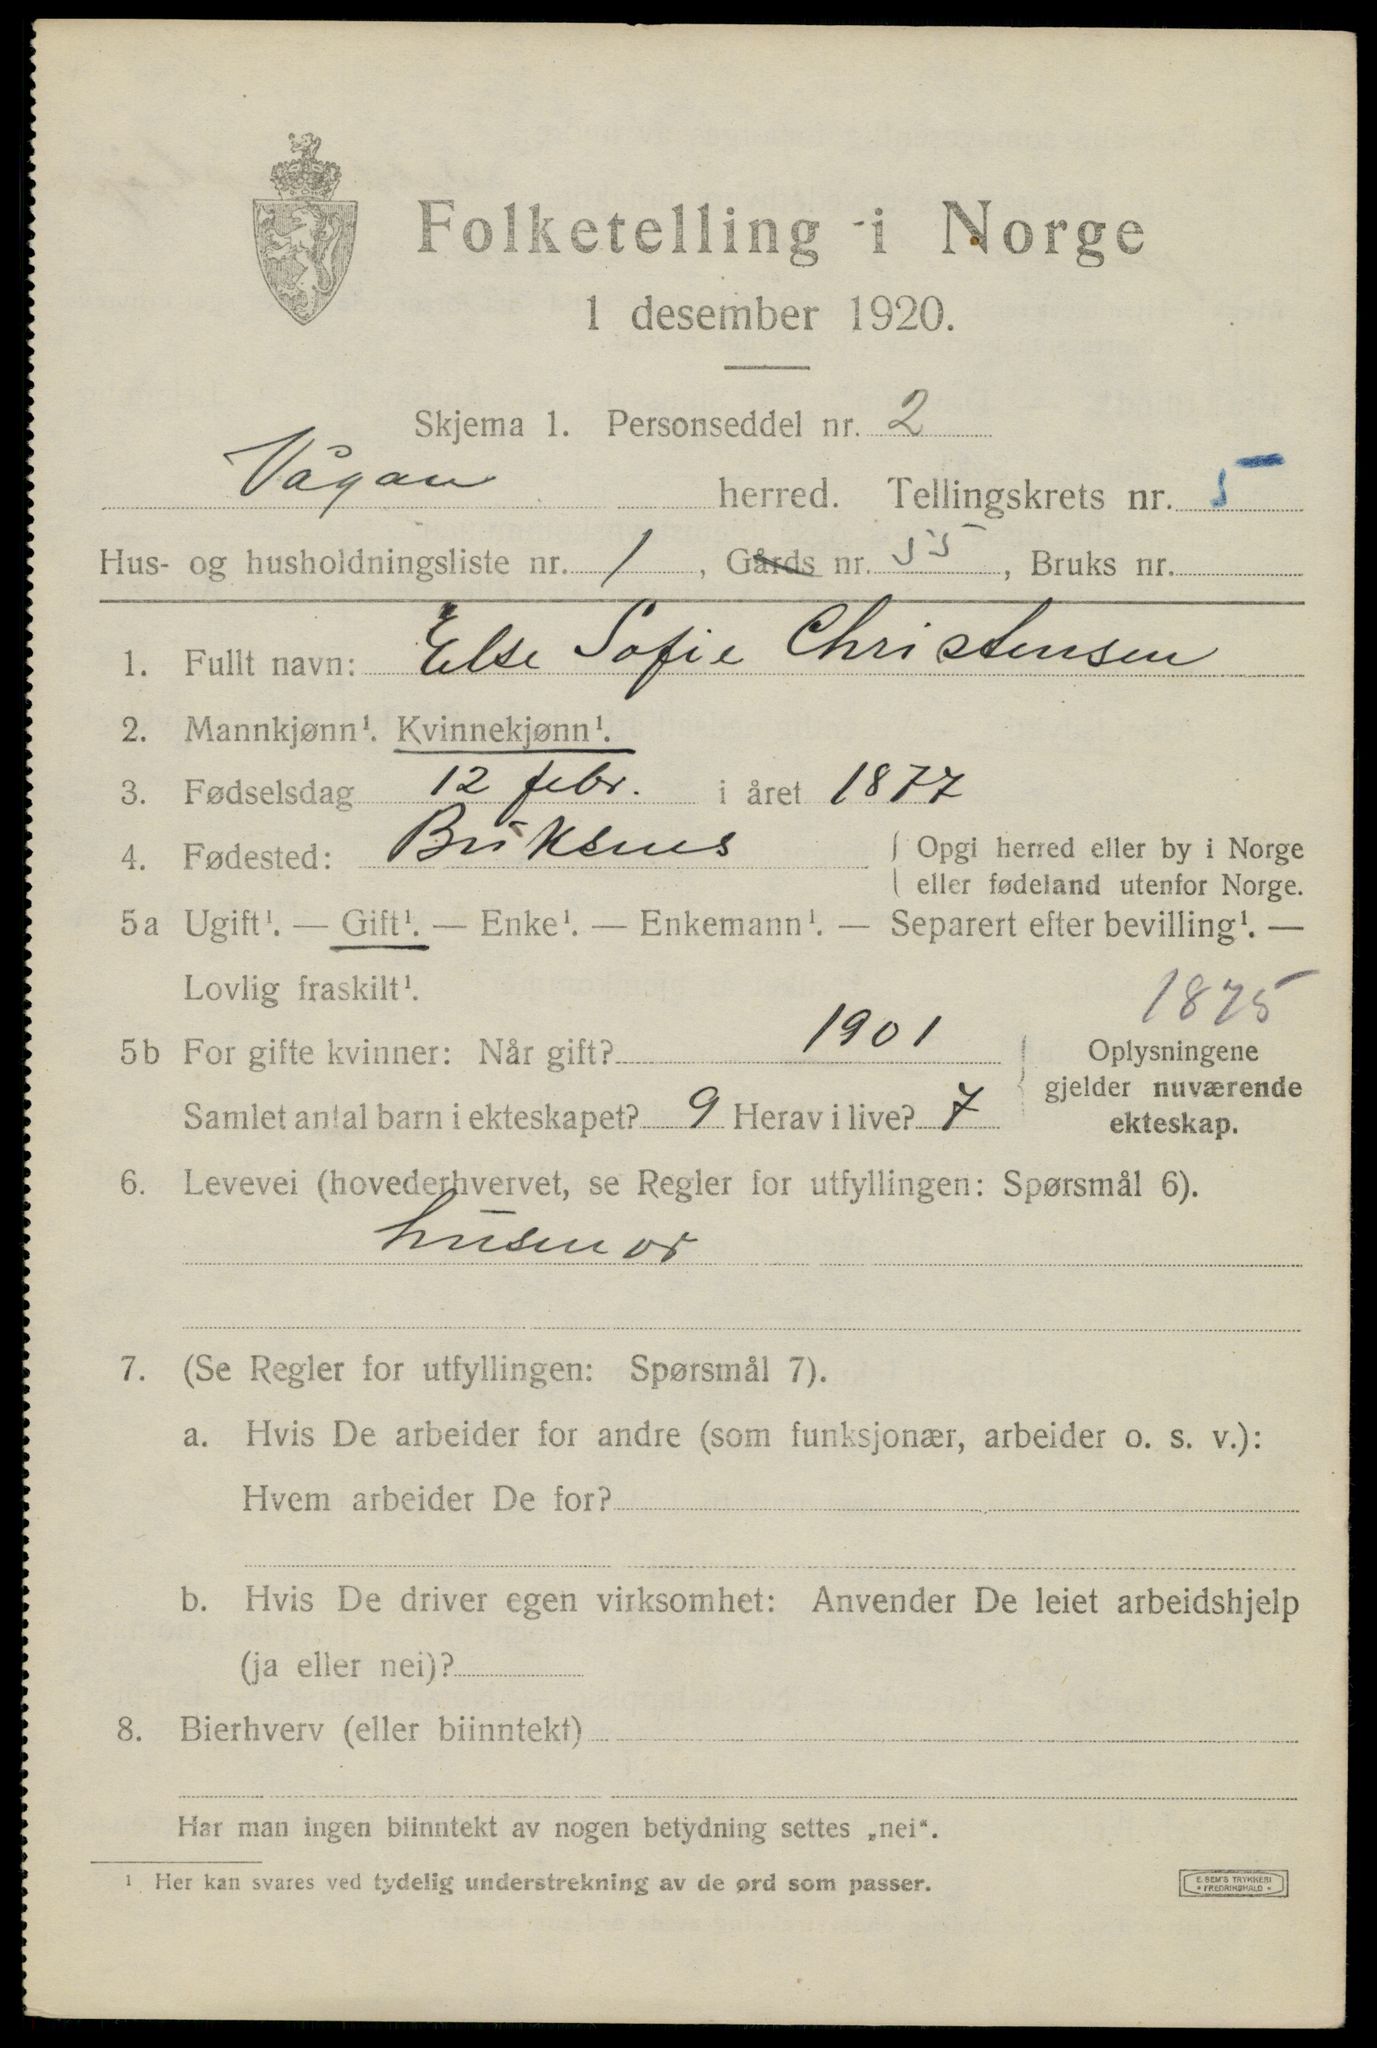 Folketelling i Norge
1 desember 1920.
Skjema 1. Personseddel nr. 2
Vågan herred. Tellingskrets nr. 5
Hus- og husholdningsliste nr. 1, Gårds nr. 55, Bruks nr.
1. Fullt navn: Else Sofie Christensen
2. Mannkjønn¹. Kvinnekjønn¹.
3. Fødselsdag 12 febr. i året 1877
4. Fødested: Buksnes { Opgi herred eller by i Norge
eller fødeland utenfor Norge.
5a Ugift¹. — Gift¹. — Enke¹. — Enkemann¹. — Separert efter bevilling¹. —
Lovlig fraskilt¹.
1875
5b For gifte kvinner: Når gift? 1901
Samlet antal barn i ekteskapet? 9 Herav i live? 7
Oplysningene
gjelder nuværende
ekteskap.
6. Levevei (hovederhvervet, se Regler for utfyllingen: Spørsmål 6).
husmor
7. (Se Regler for utfyllingen: Spørsmål 7).
a. Hvis De arbeider for andre (som funksjonær, arbeider o. s. v.):
Hvem arbeider De for?
b. Hvis De driver egen virksomhet: Anvender De leiet arbeidshjelp
(ja eller nei)?
8. Bierhverv (eller biinntekt)
Har man ingen biinntekt av nogen betydning settes „nei“.
¹ Her kan svares ved tydelig understrekning av de ord som passer.
E. SEM'S TRYKKERI
• FREDRIKSHALD •